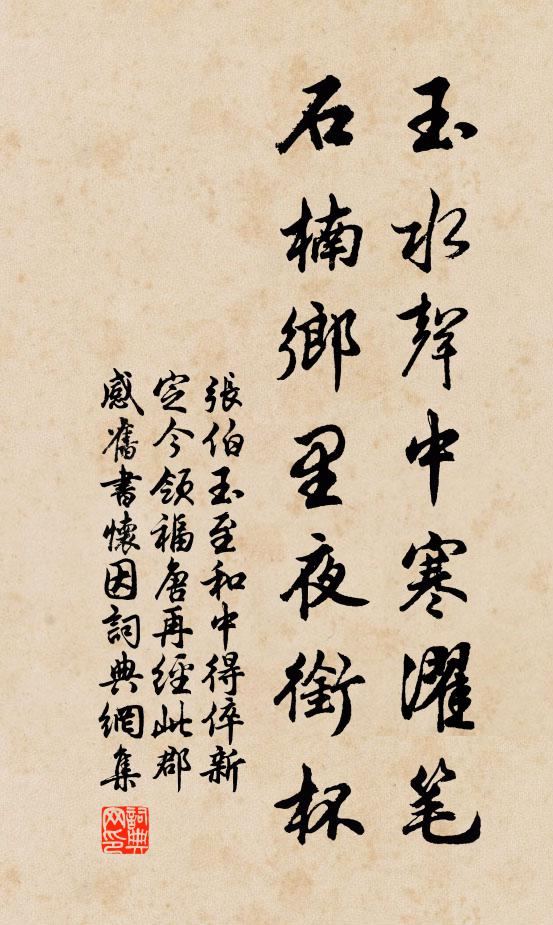 玉水聲中寒濯笔
石楠鄉里夜銜杯
張伯玉至和中得倅新
定今領福唐再經此郡
感舊書懷因詞典網集
詞典网印